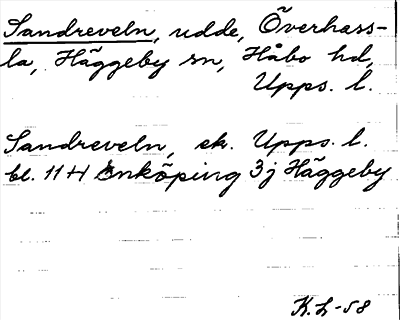 Sandreveln, udde, Överhass-
la, Häggeby sn, Håbo hd,
Upps. l.
Sandreveln, ek. Upps. l.
bl. 11 H Enköping 3j Häggeby
K.L-58